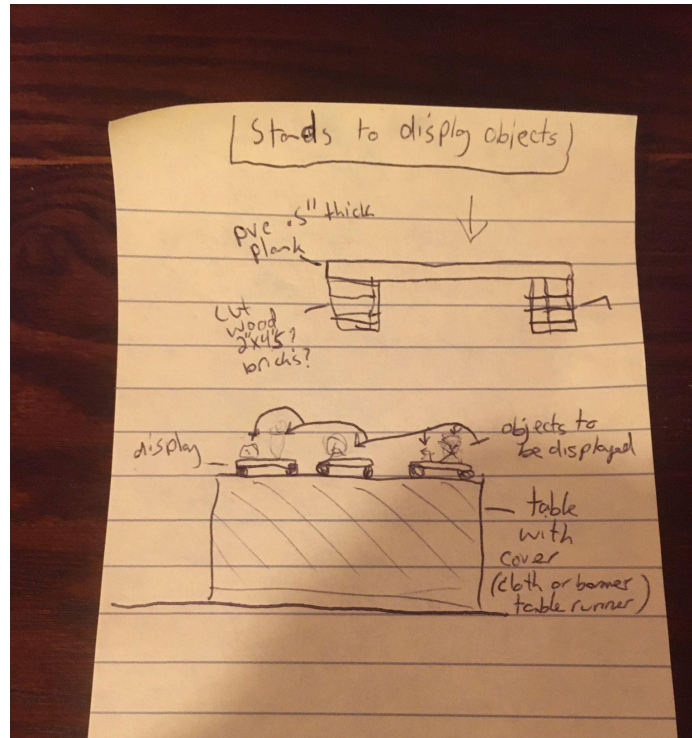 Stands to display objects
pvc .5" thick
plank
cut
wood
2"x4"s?
bricks?
display
objects to
be displayed
table
with
cover
(cloth or banner
table runner)